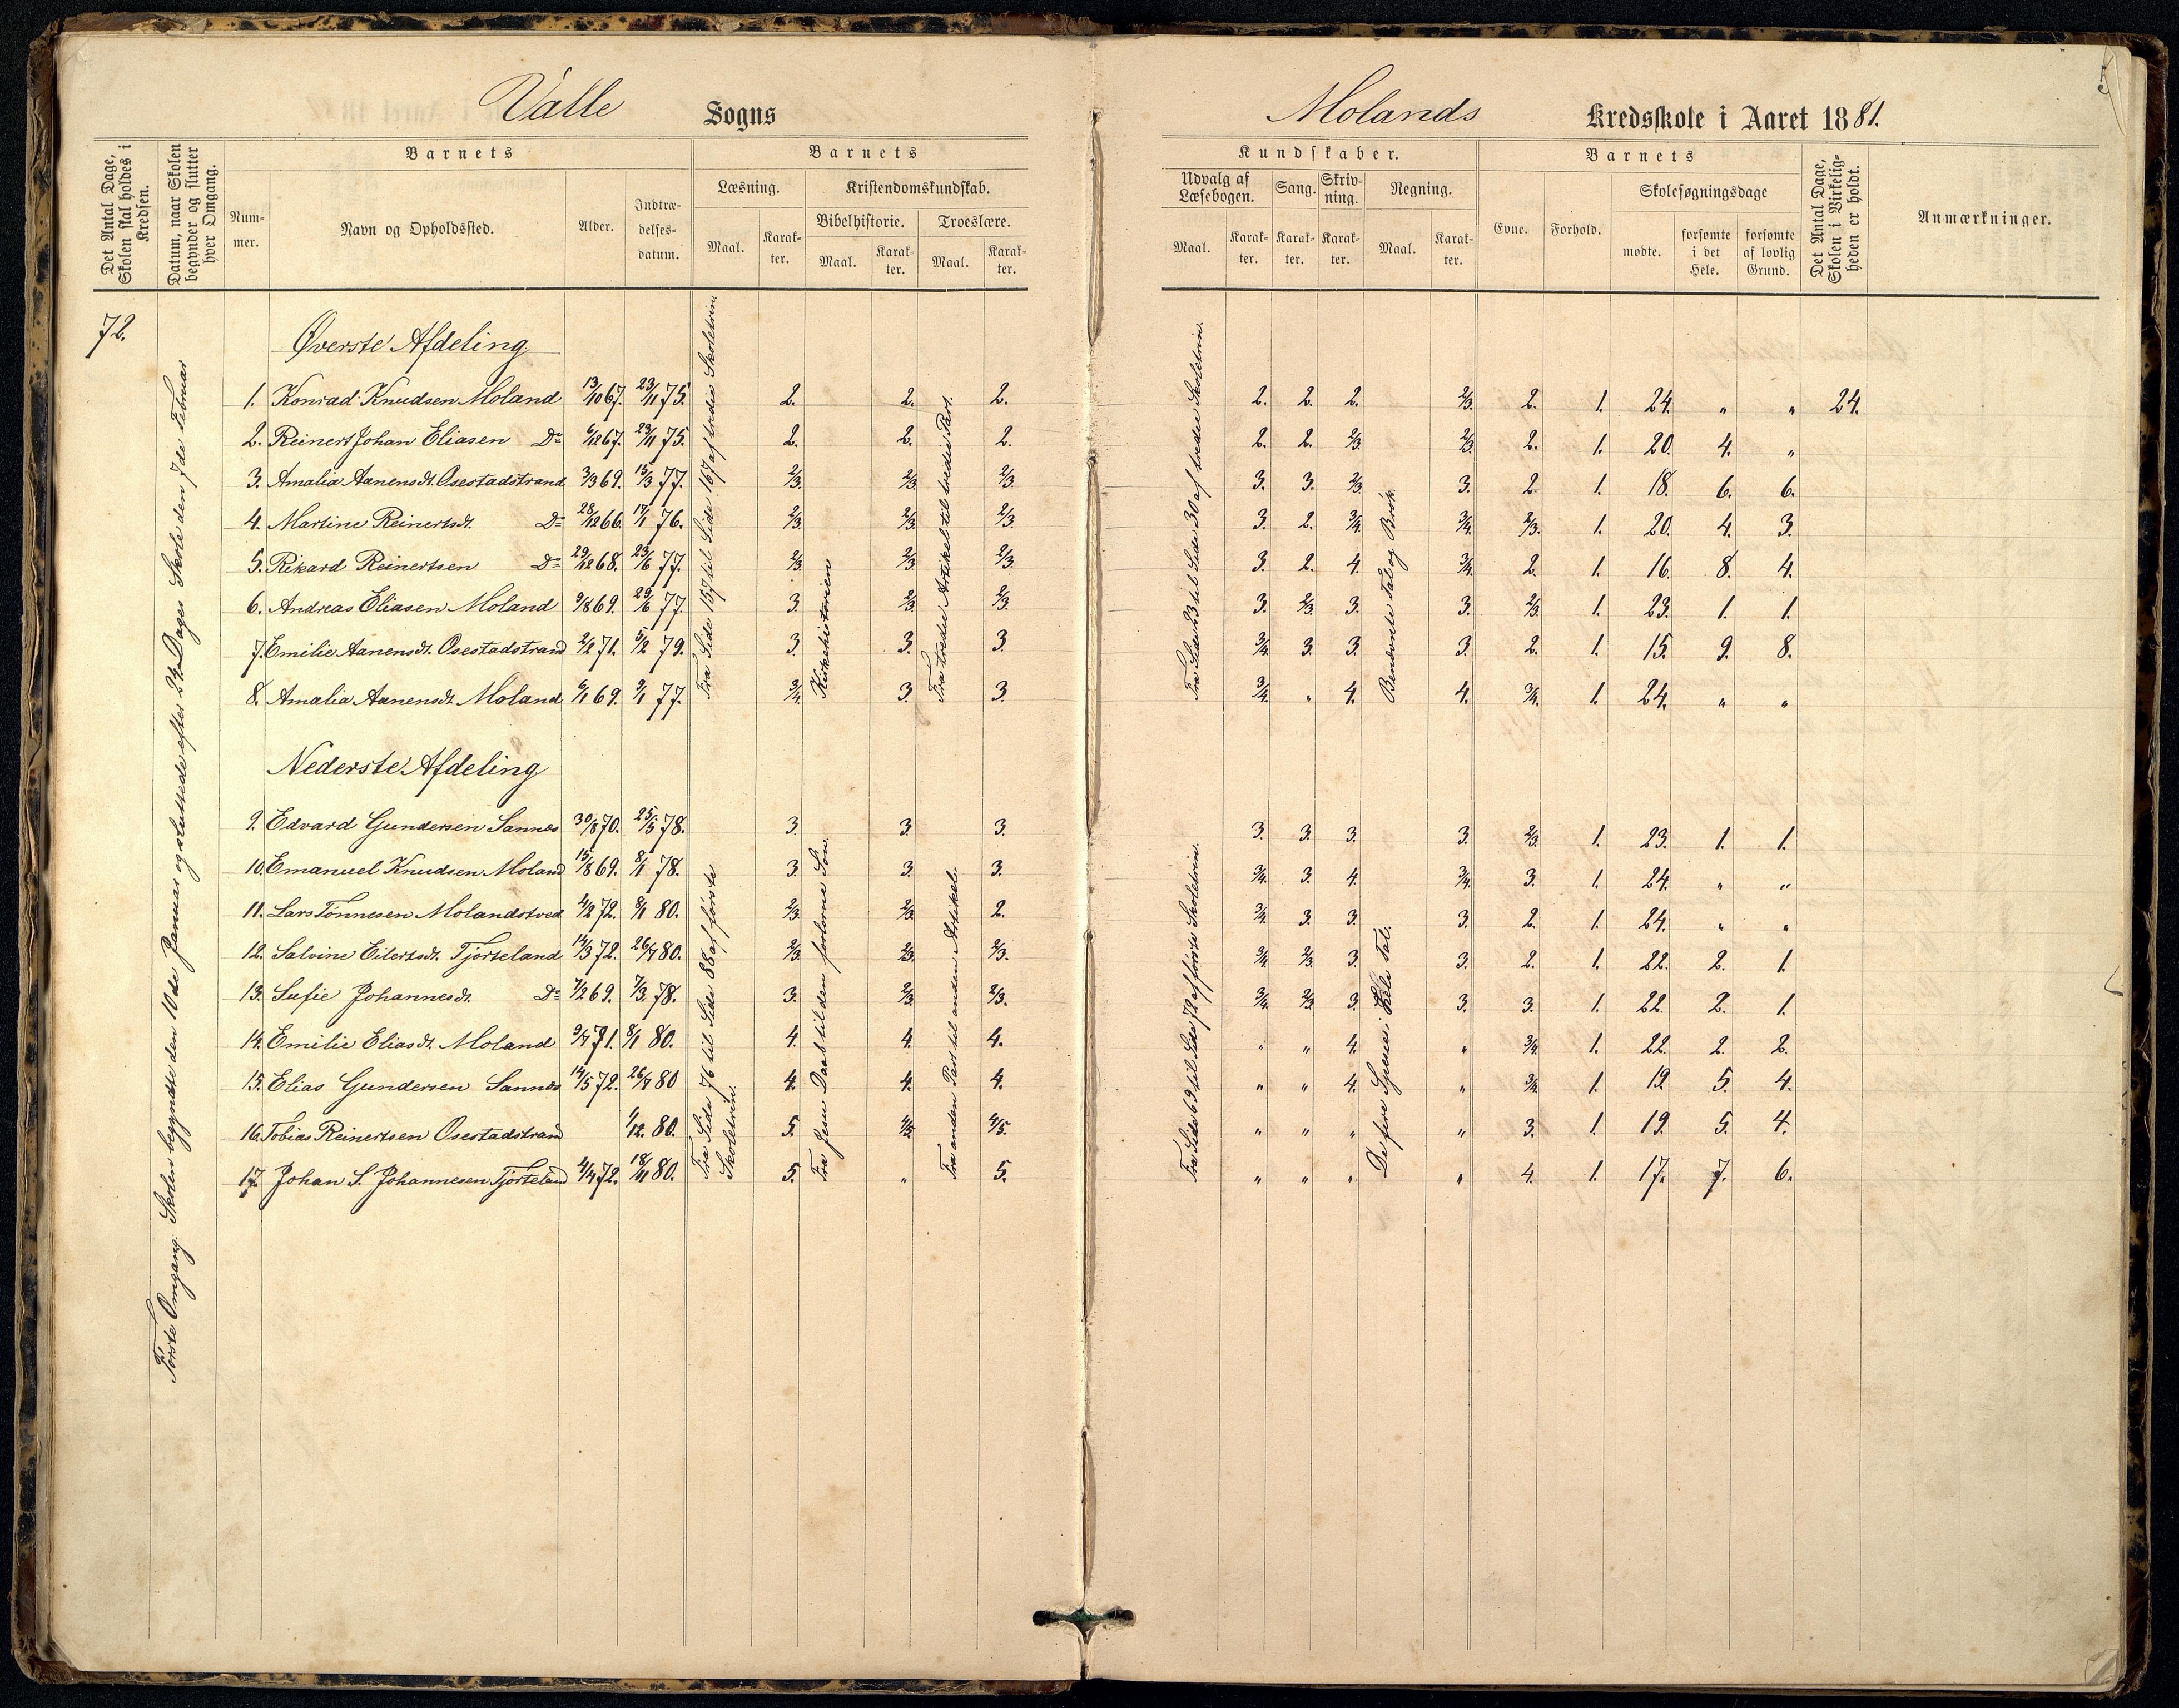 Valle Sogns
Molands Kredsskole i Aaret 1881.
5
Det Antal Dage, Skolen skal holdes i Kredsen.
Datum, naar Skolen begynder og slutter hver Omgang.
Barnets
Nummer.
Navn og Opholdssted.
Alder.
Indtrædelsesdatum.
Barnets
Læsning.
Maal.
Karakter.
Kristendomskundskab.
Bibelhistorie.
Maal.
Karakter.
Troeslære.
Maal.
Karakter.
Kundskaber.
Udvalg af Læsebogen.
Maal.
Karakter.
Sang.
Karakter.
Skrivning.
Karakter.
Regning.
Maal.
Karakter.
Barnets
Evne.
Forhold.
Skolesøgningsdage
mødte.
forsømte i det Hele.
forsømte af lovlig Grund.
Det Antal Dage, Skolen i Virkeligheden er holdt.
Anmærkninger.
72.
Første Omgang: Skolen begyndte den 10de Januar og sluttede efter 24 Dages Skole den 7de Februar
Øverste Afdeling
Fra Side 157 til Side 167 af tredie Skoletrin.
Kirkehistorien
Fra tredie Artikel til tredie Part.
Fra Side 23 til Side 30 af tredie Skoletrin.
Benævnte Tal og Brøk.
1. Konrad Knudsen Moland 13/10 67. 23/11 75. 2. 2. 2. 2. 2. 2. 2/3. 2. 1. 24. " " 24.
2. Reinert Johan Eliasen Do 6/12 67. 23/11 75. 2. 2. 2. 2. 2. 2/3. 2/3. 2. 1. 20. 4. "
3. Amalia Aanensdt. Osestadstrand 3/3 69. 15/3 77. 2/3. 2/3. 2/3. 3. 3. 2/3. 3. 2. 1. 18. 6. 6.
4. Martine Reinertsdt. Do 28/12 66. 17/1 76. 2/3. 2/3. 2/3. 3. 2. 3/4. 3/4. 2/3. 1. 20. 4. 3.
5. Rikard Reinertsen Do 29/12 68. 23/6 77. 2/3. 2/3. 2/3. 3. 2. 4. 3/4. 2. 1. 16. 8. 4.
6. Andreas Eliasen Moland 9/8 69. 29/6 77. 3. 2/3. 2/3. 3. 2/3. 3. 3. 2/3. 1. 23. 1. 1.
7. Emilie Aanensdt. Osestadstrand 2/2 71. 5/2 79. 3. 3. 3. 3/4. 3. 3. 3. 2. 1. 15. 9. 8.
8. Amalia Aanensdt. Moland 6/1 69. 9/1 77. 3/4. 3. 3. 3/4. " 4. 4. 3/4. 1. 24. " "
Nederste Afdeling
Fra Side 76 til Side 88 af første Skoletrin.
Fra Jesu Daab til den forlorne Søn.
Fra anden Part til anden Artikel.
Fra Side 69 til Side 72 af første Skoletrin.
De fire Specier i Hele Tal.
9. Edvard Gundersen Sannes 30/8 70. 25/5 78. 3. 3. 3. 3. 3. 3. 3. 2/3. 1. 23. 1. 1.
10. Emanuel Knudsen Moland 15/8 69. 8/1 78. 3. 3. 3. 3/4. 3. 4. 3/4. 3. 1. 24. " "
11. Lars Tønnesen Molandstved 4/2 72. 8/1 80. 2/3. 2/3. 2. 3/4. 3. 3. 3. 2. 1. 24. " "
12. Salvine Eilertsdt. Tjorteland 14/3 72. 26/4 80. 2/3. 2/3. 2/3. 3/4. 2/3. 3. 3. 2. 1. 22. 2. 1.
13. Sufie Johannesdt. Do 7/2 69. 7/3 78. 3. 2/3. 2/3. 3/4. 2/3. 3. 3. 3. 1. 22. 2. 1.
14. Emilie Eliasdt. Moland 9/4 71. 8/1 80. 4. 4. 4. " " 4. " 3/4. 1. 22. 2. 2.
15. Elias Gundersen Sannes 14/5 72. 26/4 80 4. 4. 4. " " 4. " 3/4. 1. 19. 5. 4.
16. Tobias Reinertsen Osestadstrand 1/12. 80. 5. 4/5. 4/5. " " " " 3. 1. 19. 5. 4.
17. Johan S. Johannesen Tjorteland 4/4 72. 18/11 80. 5. " 5. " " " " 4. 1. 17. 7. 6.